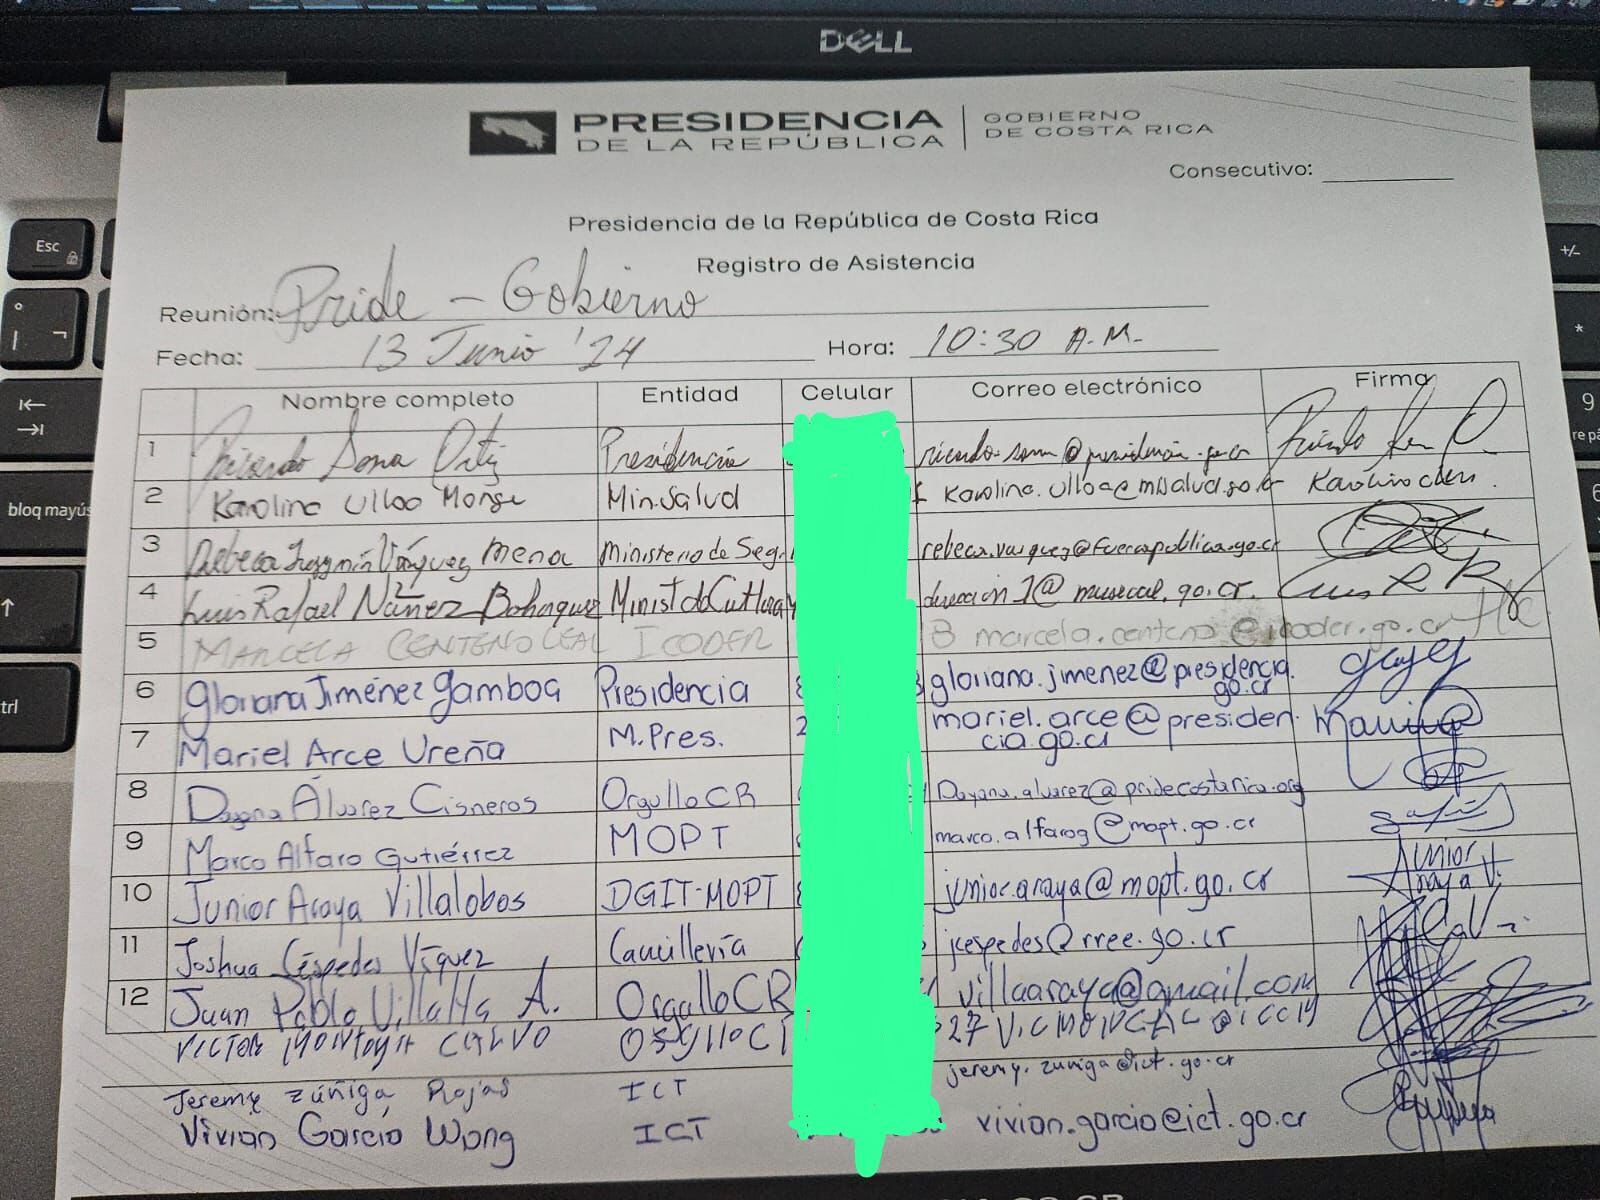 DELL
PRESIDENCIA
DE LA REPÚBLICA
GOBIERNO
DE COSTA RICA
Consecutivo:
Presidencia de la República de Costa Rica
Registro de Asistencia
Reunión: Pride - Gobierno
Fecha: 13 Junio '24 Hora: 10:30 A.M.
Nombre completo Entidad Celular Correo electrónico Firma
1 Ricardo Sosa Ortiz Presidencia
2 Karolina Ulloa Monge Min.Salud karolina.ulloa@misalud.go.cr
3 Rebeca Vásquez Mena Ministerio de Seg. rebeca.vasquez@fuerzapublica.go.cr
4 Luis Rafael Núñez Bohorquez direccion1@museocal.go.cr.
5 MARCELA CENTENO LEAL ICODER marcela.centeno@icoder.go.cr
6 Gloriana Jiménez Gamboa Presidencia gloriana.jimenez@presidencia.
go.cr
7 Mariel Arce Ureña M.Pres. mariel.arce@presiden
cia.go.cr
8 Dayana Álvarez Cisneros OrgulloCR Dayana.alvarez@pridecostarica.org
9 Marco Alfaro Gutiérrez MOPT marco.alfarog@mopt.go.cr
10 Junior Araya Villalobos DGIT-MOPT junior.araya@mopt.go.cr Junior
Araya V.
11 Joshua Céspedes Víquez Cancillería jcespedes@rree.go.cr
12 Juan Pablo Villalta A. OrgulloCR villaaraya@gmail.com
VICTOR MONTOYA CALVO
Jeremy Zúñiga Rojas ICT jeremy.zuniga@ict.go.cr
Vivian García Wong ICT vivian.garcia@ict.go.cr
Esc
bloq mayús
ctrl